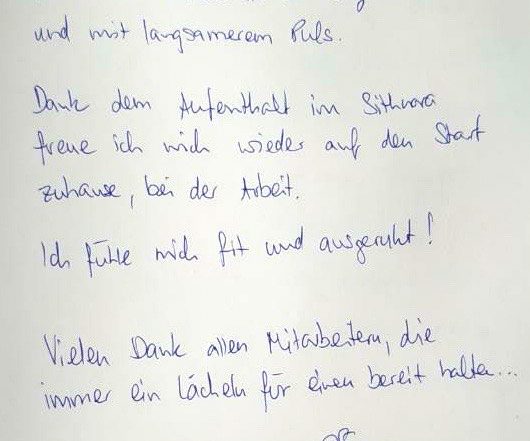 und mit langsamerem Puls.
Dank dem Aufenthalt im Sithnara
freue ich mich wieder auf den Start
zuhause, bei der Arbeit.
Ich fühle mich fit und ausgeruht!
Vielen Dank allen Mitarbeitern, die
immer ein Lächeln für einen bereit halten...